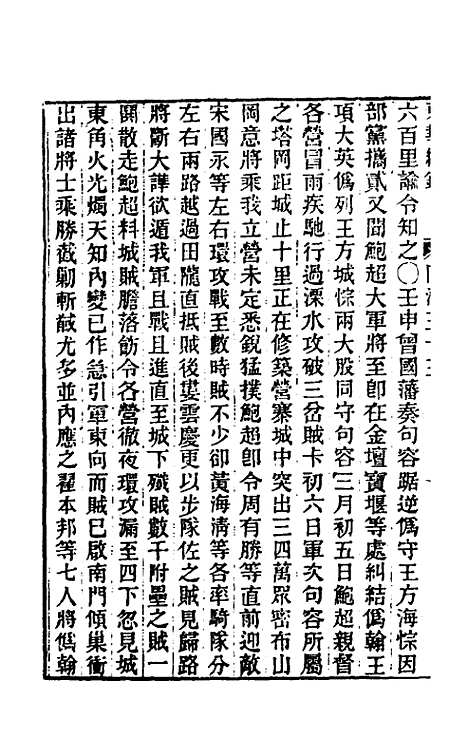 六百里諭令知之〇壬申曾國藩奏句容踞逆僞守王方海悰因
部黨攜貳又聞鮑超大軍將至卽在金壇寶堰等處糾結僞翰王
項大英僞列王方城悰兩大股同守句容三月初五日鮑超親督
各營冒雨疾馳行過溧水攻破三岔賊卡初六日軍次句容所屬
之塔岡距城止十里正在修築營寨城中突出三四萬眾密布山
岡意將乘我立營未定悉銳猛撲鮑超卽令周有勝等直前迎敵
宋國永等左右環攻戰至數時賊不少卻黃海清等各率騎隊分
左右兩路越過田隴直抵賊後婁雲慶更以步隊佐之賊見歸路
將斷大譁欲遁我軍且戰且進直至城下殲賊數千附壘之賊一
鬨散走鮑超料城賊膽落飭令各營徹夜環攻漏至四下忽見城
東角火光燭天知內變已作急引軍東向而賊已啟南門傾巢衝
出諸將士乘勝截勦斬馘尤多並內應之翟本邦等七人將僞翰